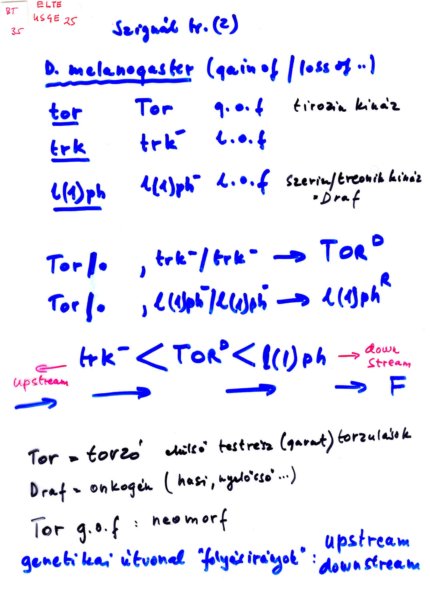 BT ELTE
35 USGE 25
Szignál tr. (2)
D. melanogaster (gain of / loss of ..)
tor Tor g.o.f tirozin kináz
trk trk⁻ l.o.f
l(1)ph l(1)ph⁻ l.o.f szerin/treonin kináz
• Draf
Tor/. , trk⁻/trk⁻ → TORᴰ
Tor/. , l(1)ph⁻/l(1)ph⁻ → l(1)phᴿ
← trk⁻ < TORᴰ < l(1)ph → down stream
upstream
→ → → → F
Tor = torzó elülső testrész (garat) torzulások
Draf = onkogén (hasi, nyelőcső ...)
Tor g.o.f : neomorf
genetikai útvonal "folyásirányok" : upstream
downstream